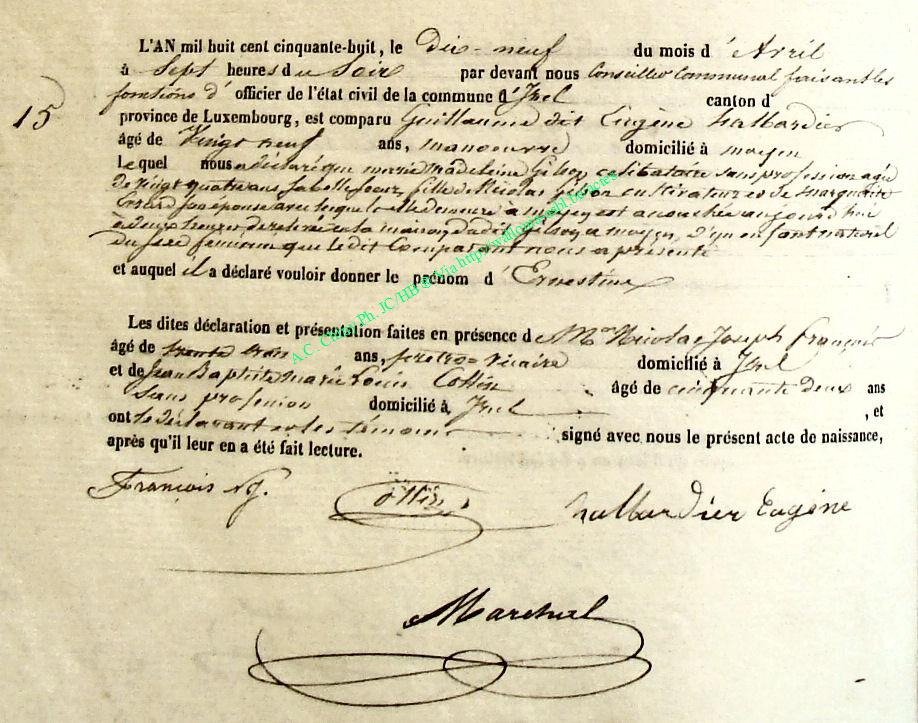 15
L'AN mil huit cent cinquante-huit, le Dix-neuf du mois d'Avril
à Sept heures du Soir par devant nous Conseiller Communal faisant les
fonctions d'officier de l'état civil de la commune d'Izel canton d'
province de Luxembourg, est comparu Guillaume dit Eugène halbardier
âgé de Vingt neuf ans, manoeuvre domicilié à moyen
lequel nous a déclaré que marie Madeleine Gilson célibataire sans profession agée
de vingt quatre ans, sa belle Soeur, fille de Nicolas Gilson cultivateur et de marguerite
son épouse avec lesquels elle demeure à moyen est accouchée aujourd'hui
à deux heures de relevée en la maison dudit Gilson à moyen, d'un enfant naturel
du sexe féminin que ledit Comparant nous a présenté
et auquel il a déclaré vouloir donner le prénom d'Ernestine
Les dites déclaration et présentation faites en présence de Mr Nicolas Joseph François
âgé de trente trois ans, prêtre-vicaire domicilié à Izel
et de Jean Baptiste marie Louis Collin âgé de cinquante deux ans
Sans profession domicilié à Izel , et
ont le déclarant et les témoins signé avec nous le présent acte de naissance,
après qu'il leur en a été fait lecture.
François Nj. halbardier Eugène
Marchal
A.C. Chiny Ph. JC/HB © Via http://wallonica.bl.bocacies